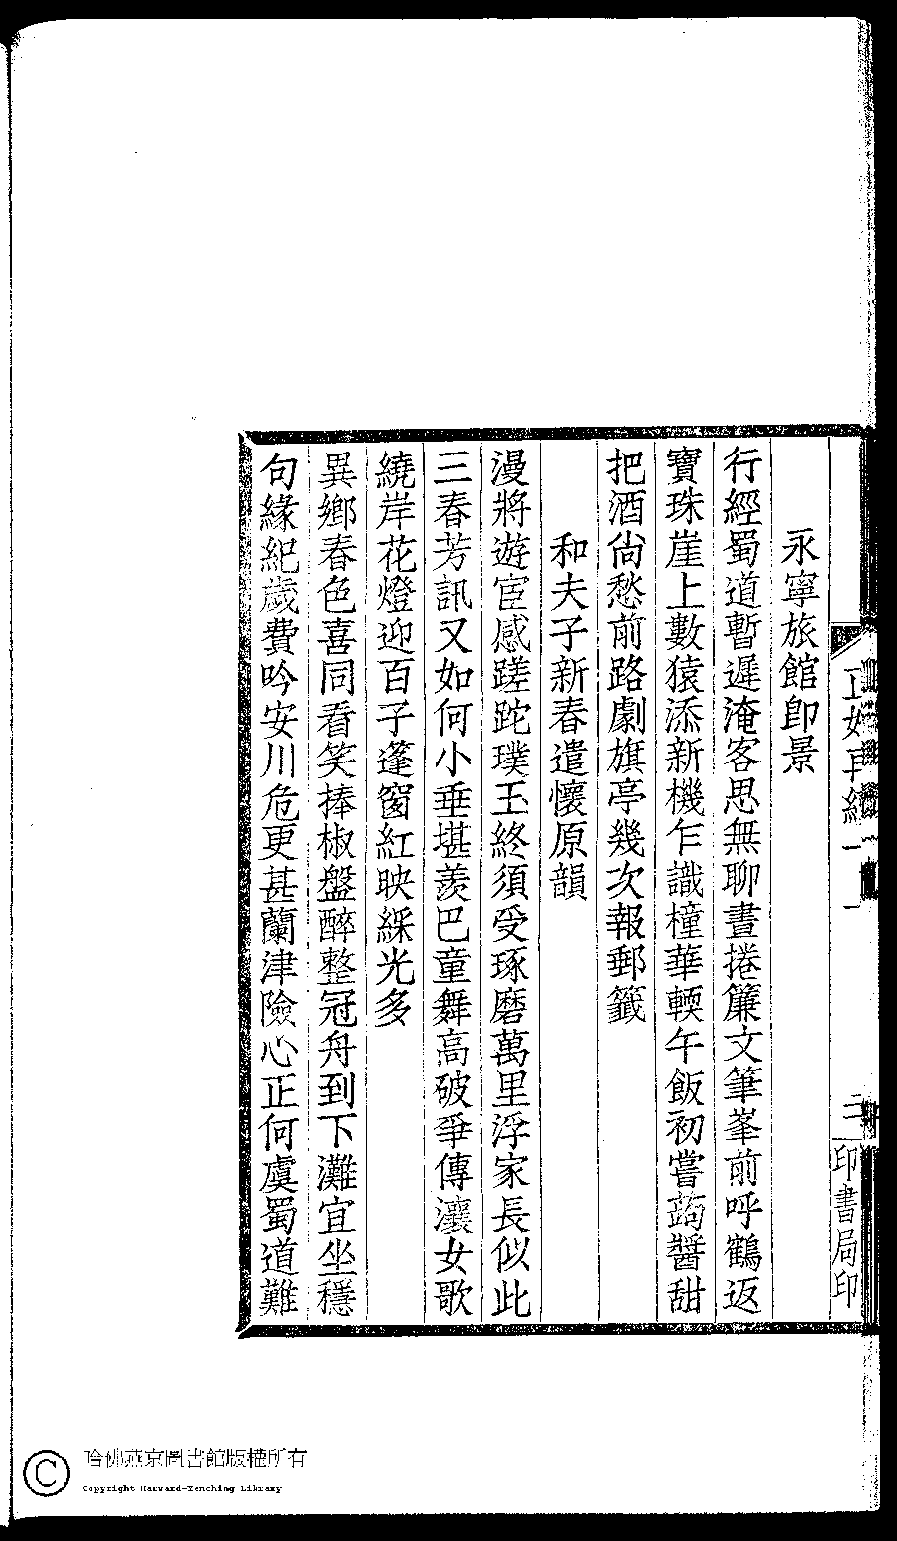 永寧旅館卽景
行經蜀道暫遲淹客思無聊晝捲簾文筆峯前呼鶴返
寶珠崖上數猿添新機乍識橦華輭午飯初嘗蒟醬甜
把酒尙愁前路劇旗亭幾次報郵籤
和夫子新春遣懷原韻
漫將遊宦感蹉跎璞玉終須受琢磨萬里浮家長似此
三春芳訊又如何小垂堪羨巴童舞高破爭傳瀼女歌
繞岸花燈迎百子蓬窗紅映綵光多
異鄉春色喜同看笑捧椒盤醉整冠舟到下灘宜坐穩
句緣紀歲費吟安川危更甚蘭津險心正何虞蜀道難
印書局印
哈佛燕京圖書館版權所有
Copyright Harvard-Yenching Library